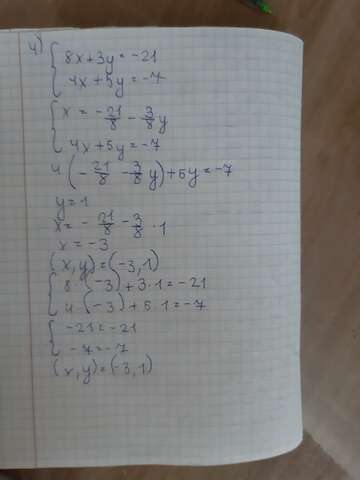 4) { 8x+3y=-21
4x+5y=-7
{ x = -21/8 - 3/8y
4x+5y=-7
4(-21/8 - 3/8y)+5y=-7
y=1
x= - 21/8 - 3/8 · 1
x = -3
(x,y)=(-3,1)
{ 8·(-3)+3·1=-21
4·(-3)+5·1=-7
{ -21=-21
-7=-7
(x,y)=(-3,1)